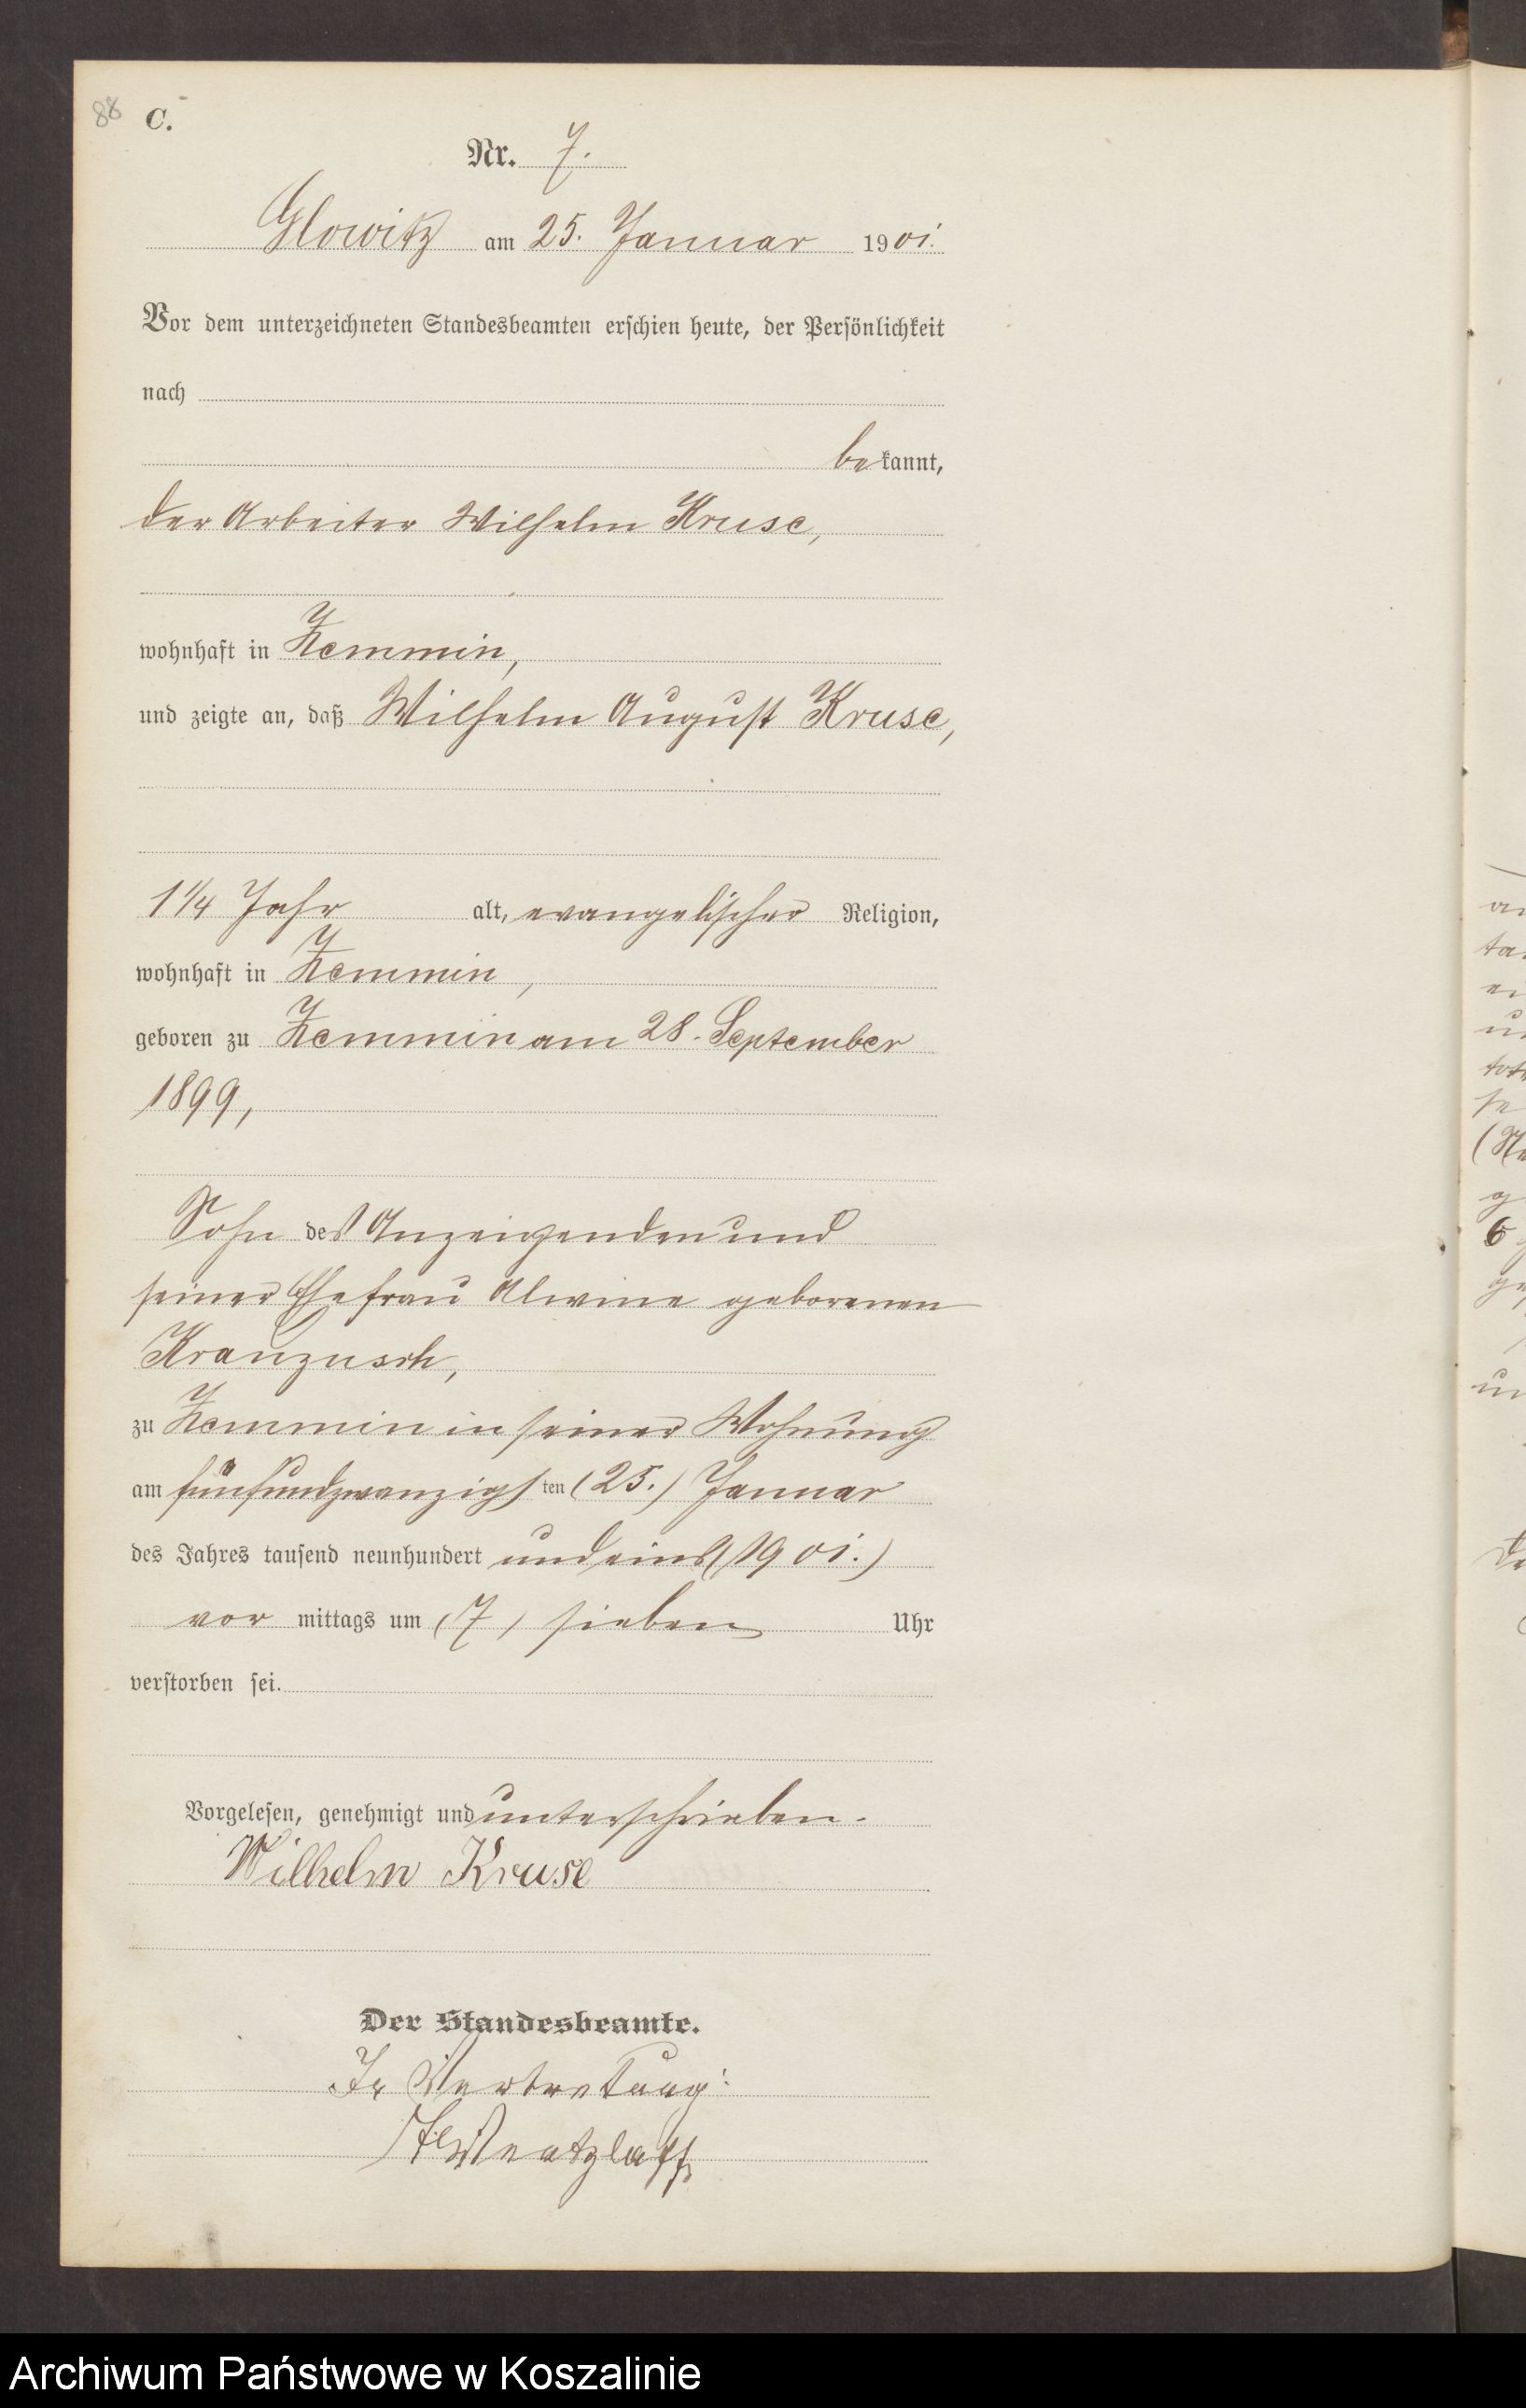 88 C.
Nr. 7.
Glowitz am 25. Januar 1901.
Vor dem unterzeichneten Standesbeamten erschien heute, der Persönlichkeit
nach
bekannt,
der Arbeiter Wilhelm Kruse,
wohnhaft in Zemmin,
und zeigte an, daß Wilhelm August Kruse,
1 1/4 Jahr alt, evangelischer Religion,
wohnhaft in Zemmin,
geboren zu Zemmin am 28. September
1899,
Sohn des Anzeigenden und
seiner Ehefrau Alwine geborenen
Kranzusch,
zu Zemmin in seiner Wohnung
am fünfundzwanzigsten (25.) Januar
des Jahres tausend neunhundert und eins (1901.)
vor mittags um (7) sieben Uhr
verstorben sei.
Vorgelesen, genehmigt und unterschrieben.
Wilhelm Kruse
Der Standesbeamte.
In Vertretung:
Archiwum Państwowe w Koszalinie